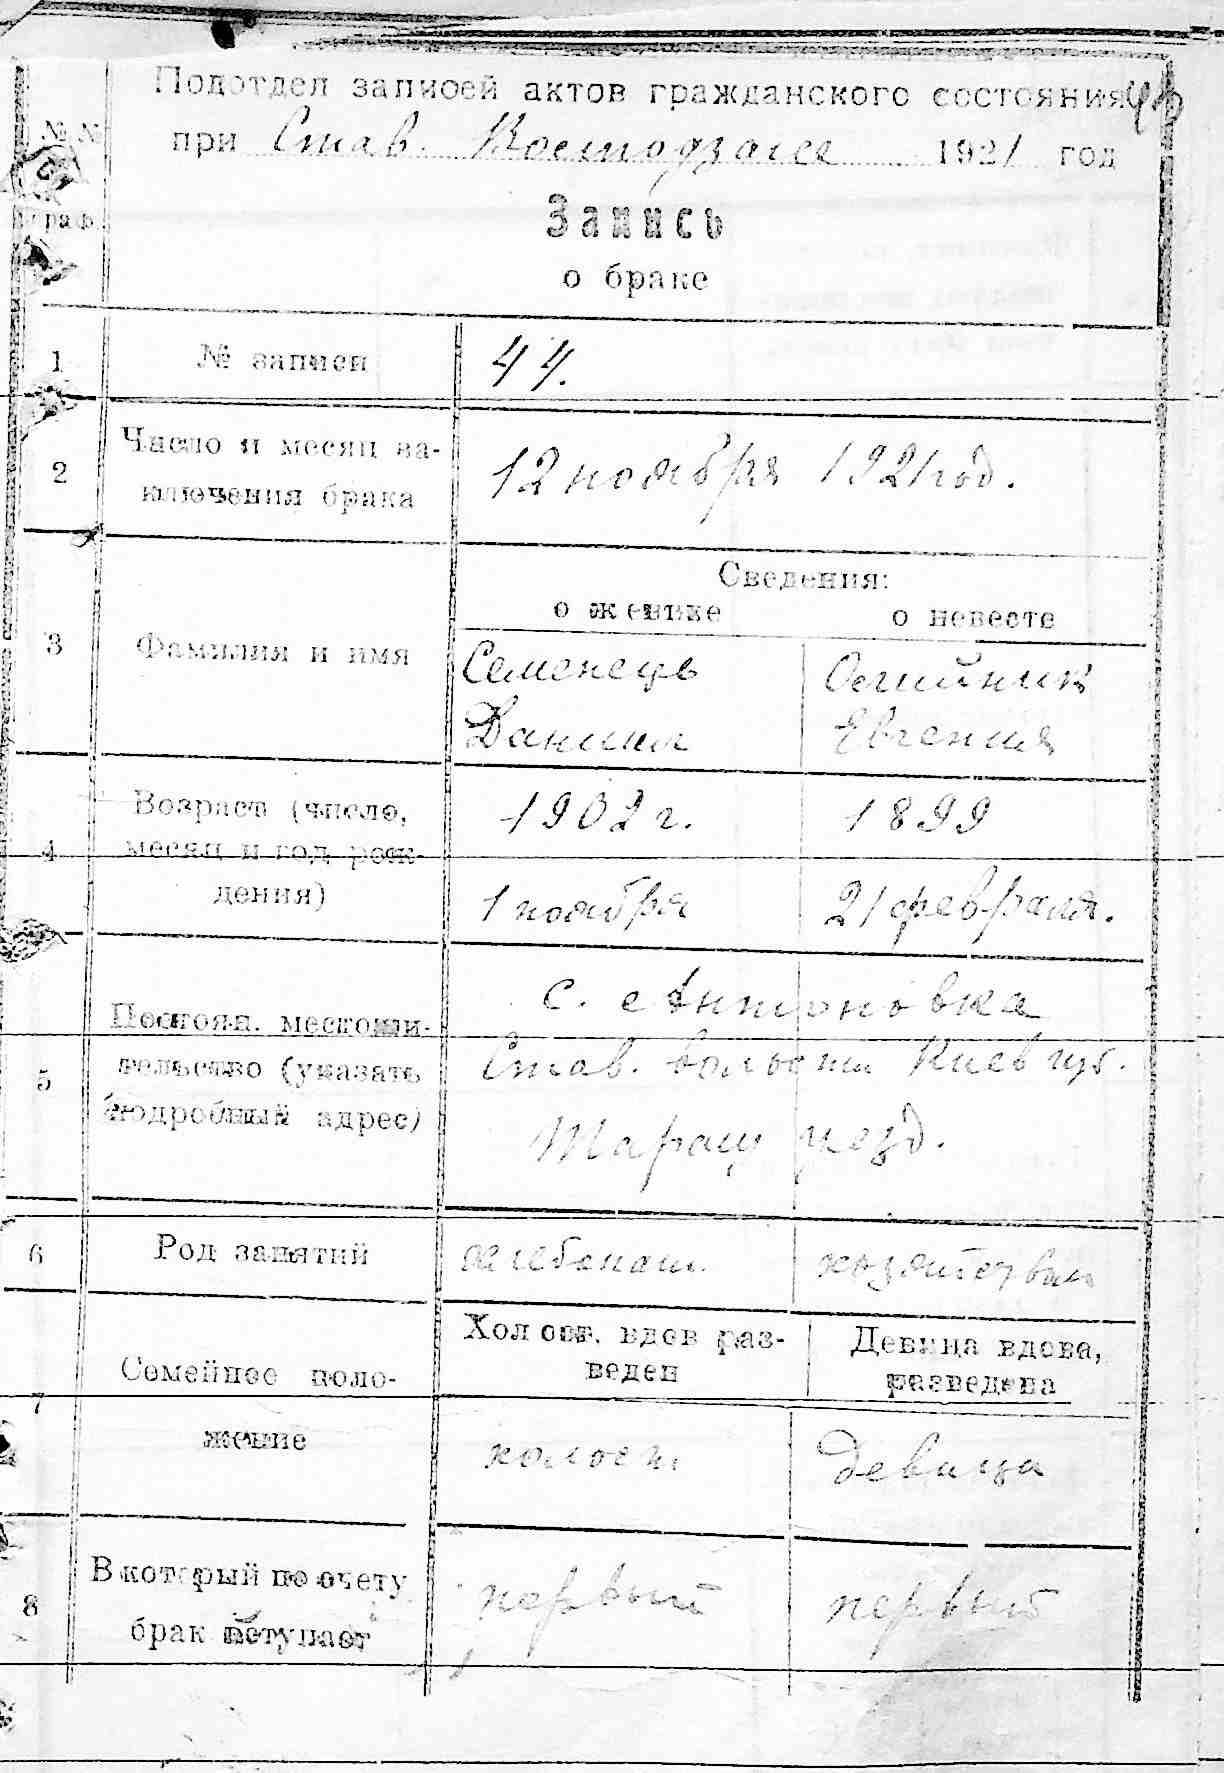 Подотдел записей актов гражданского состояния
при Став. 1921 год
№ №
граф
Запись
о браке
1 № записи 44.
2 Число и месяц за-
ключения брака 12 ноября 1921 год.
Сведения:
о женихе о невесте
3 Фамилия и имя Семенець Олийник
Данило Евгения
4 Возраст (число, 1902 г. 1899
месяц и год рож-
дения) 1 ноября 21 февраля.
5 Постоян. местожи- с. Антоновка
тельство (указать Став. волости Киев губ.
подробный адрес) Таращ уезд.
6 Род занятий хлебопаш.
Холост. вдов раз- Девица вдова,
веден разведена
7 Семейное поло-
жение холост девица
8 В который по счету первый первый
брак вступает